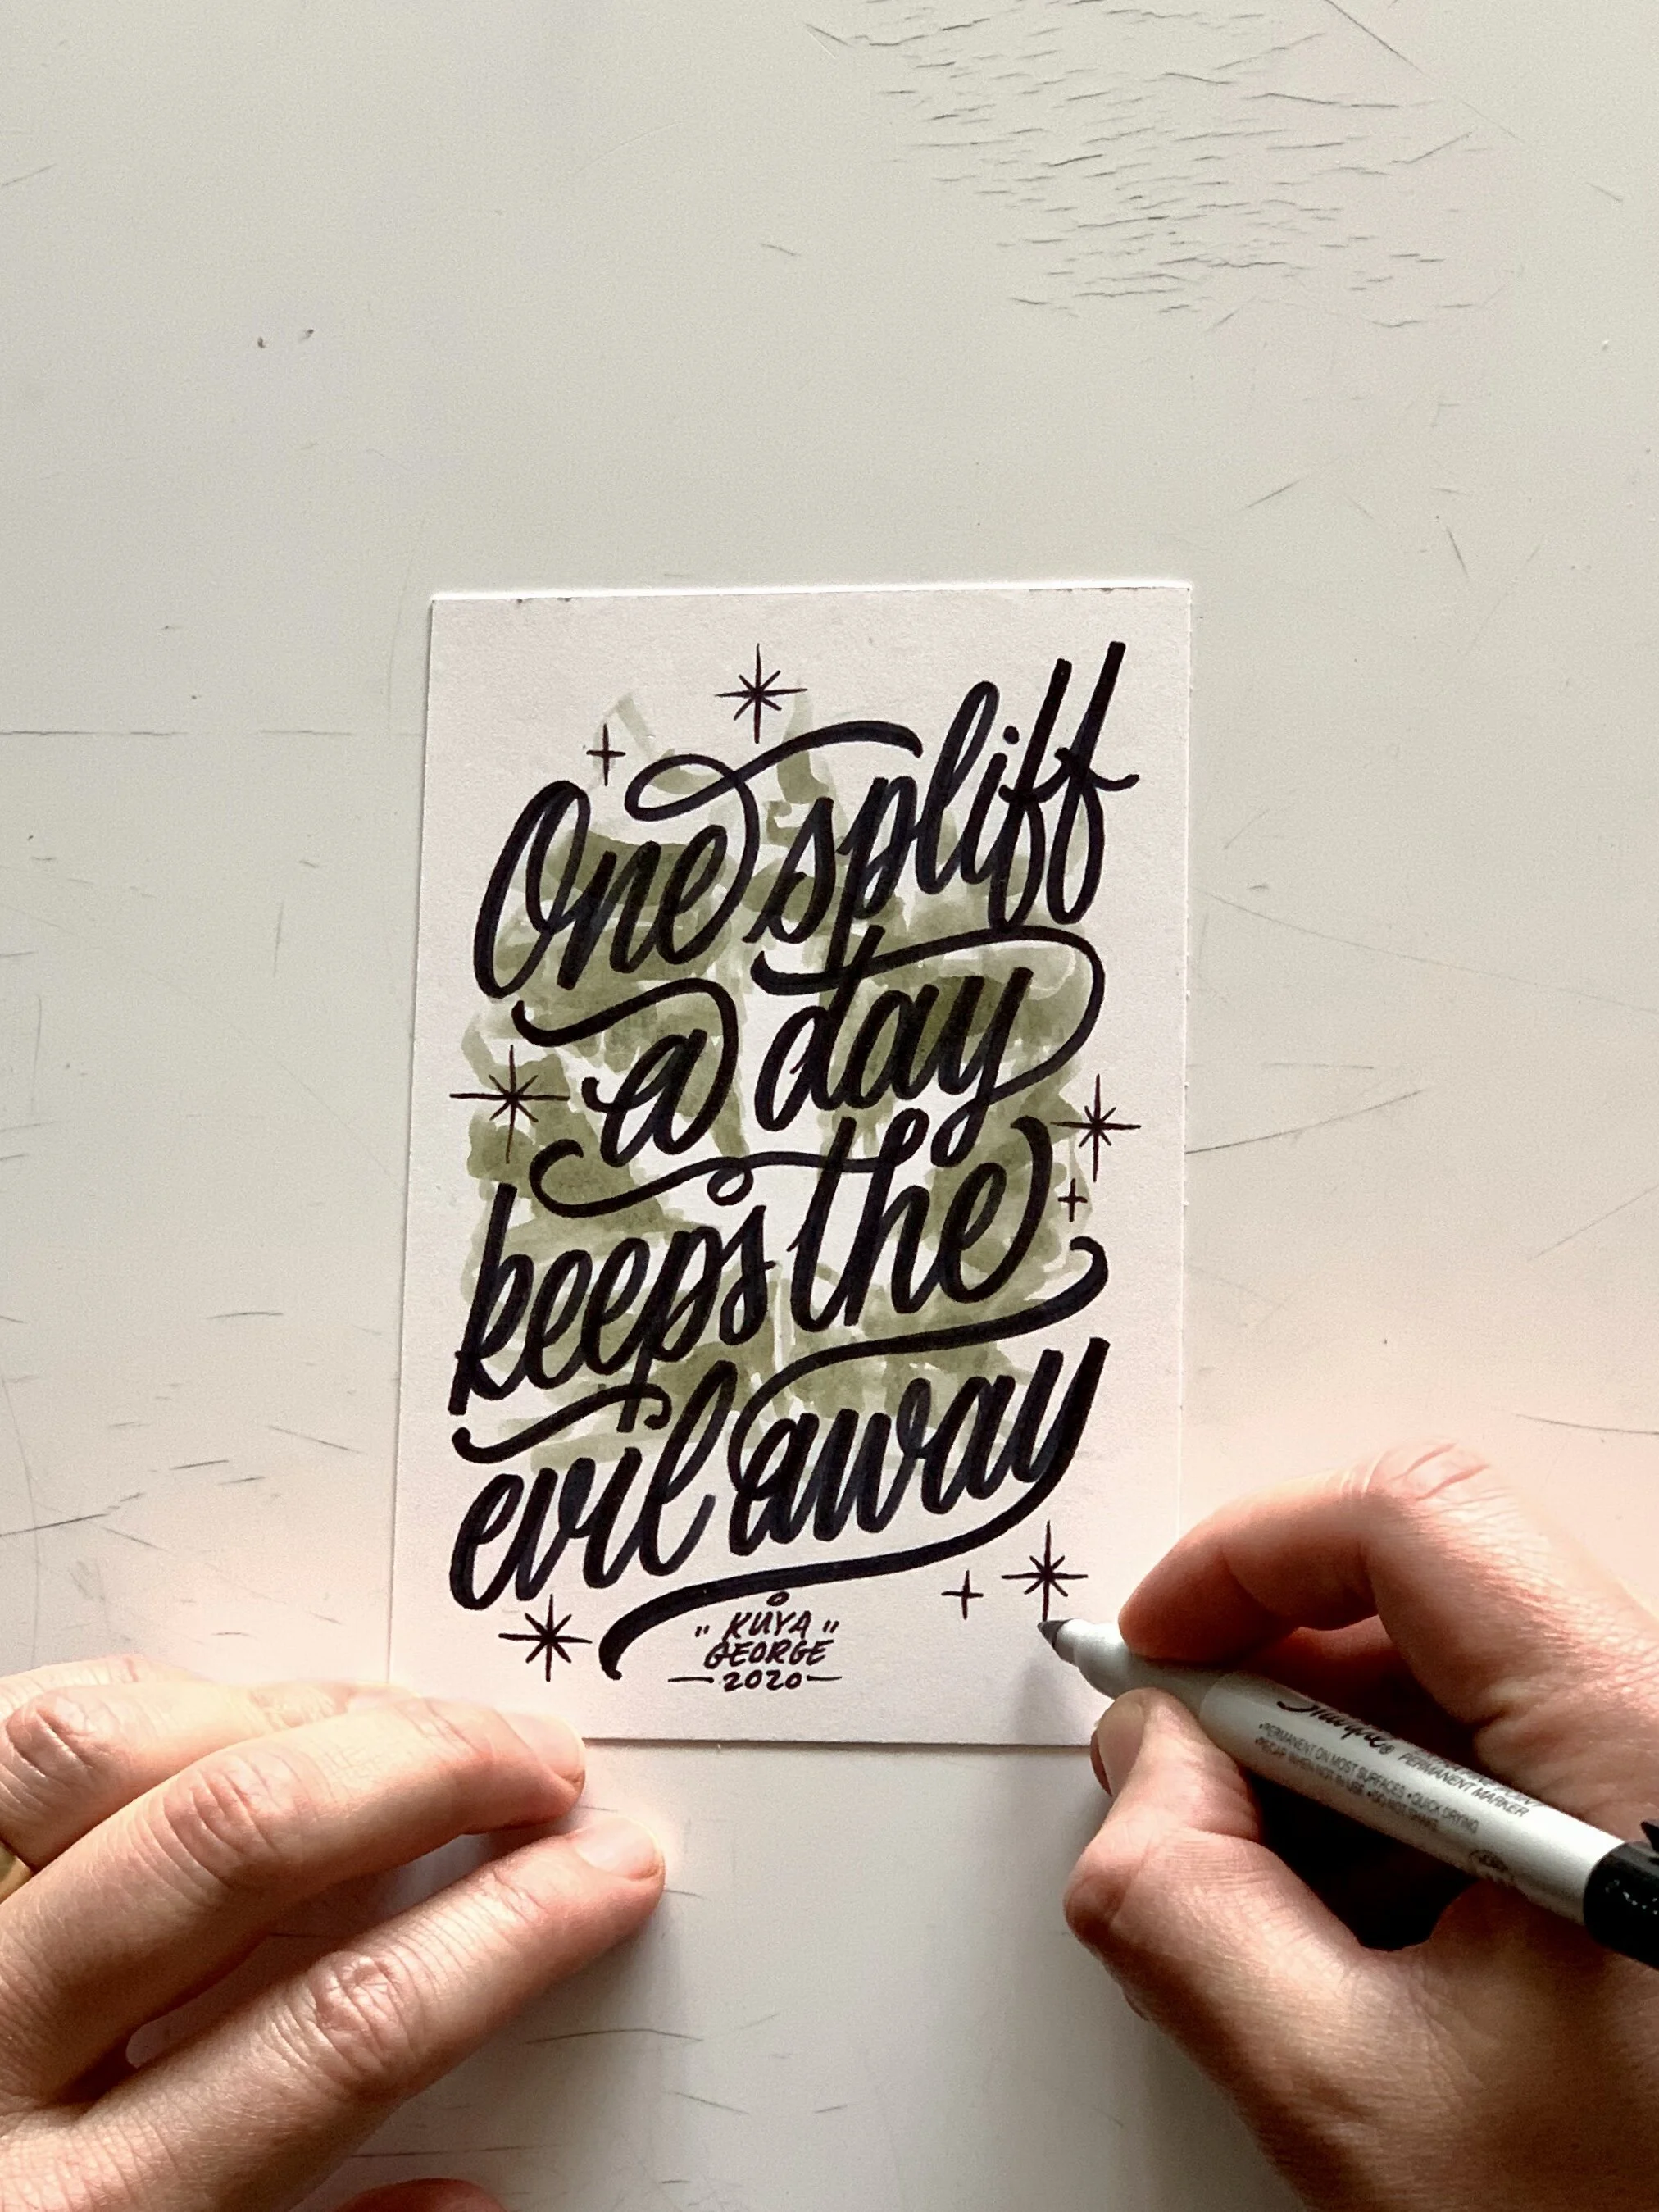 One spliff
a day
keeps the
evil away
"KUYA"
GEORGE
2020
Sharpie®
PERMANENT MARKER
•PERMANENT ON MOST SURFACES •QUICK DRYING